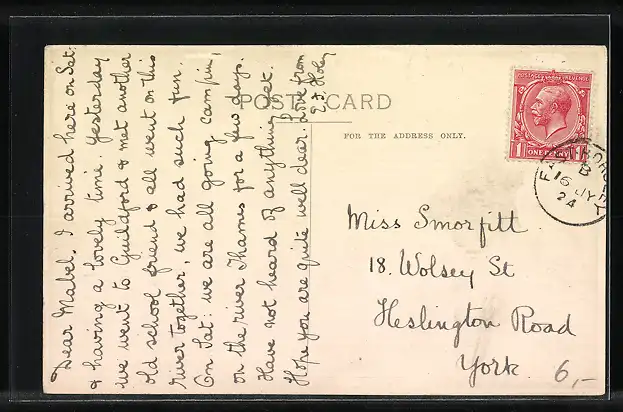 Dear Mabel, I arrived here on Sat:
& having a lovely time. Yesterday
we went to Guildford & met another
old school friend & all went on this
river together, we had such fun.
On Sat: we are all going campin,
on the river Thames for a few days.
Have not heard of anything yet.
Hope you are quite well dear. Love from
POST CARD
FOR THE ADDRESS ONLY.
POSTAGE REVENUE
1 ONE PENNY 1
B
16 JY
24
Miss Smorfitt
18. Wolsey St
Heslington Road
York
6,-